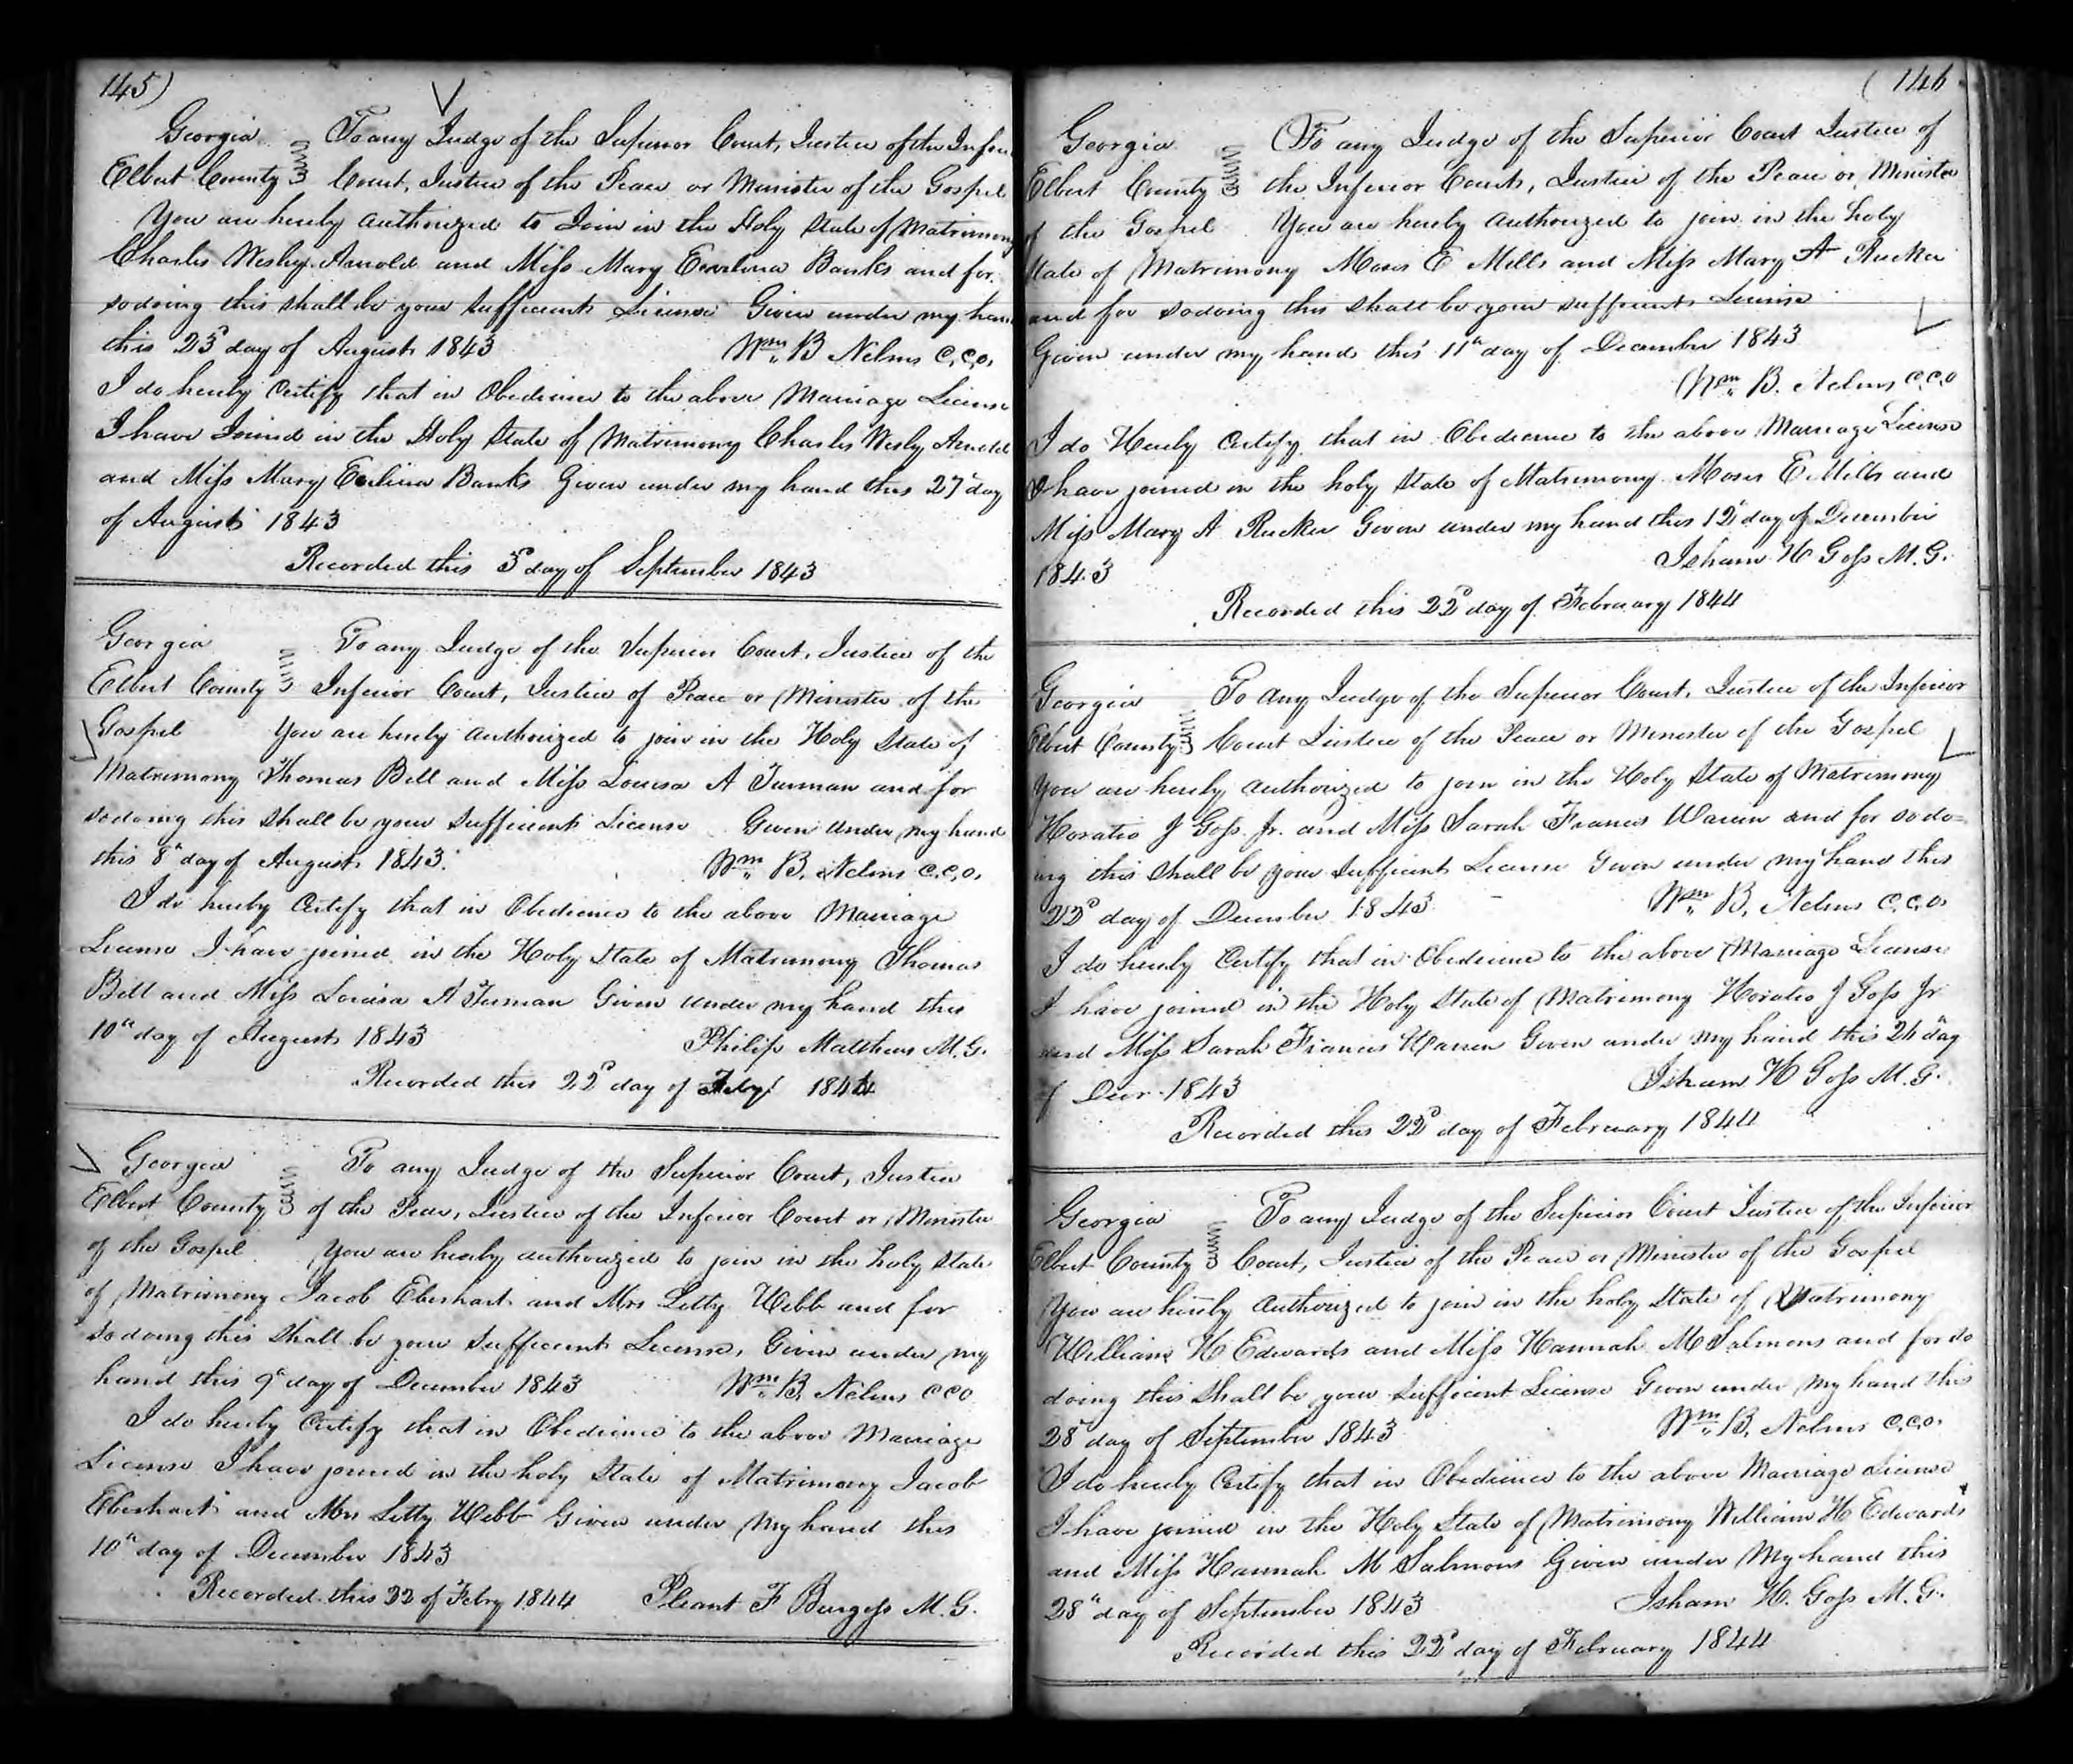 145)
Georgia To any Judge of the Superior Court, Justice of the Infer
Elbert County Court, Justice of the Peace or Minister of the Gospel
You are hereby authorized to Join in the Holy State of Matrimony
Charles Wesley Arnold and Miss Mary Evelina Banks and for
so doing this shall be your sufficient License Given under my han
this 23d day of August 1843 Wm B Nelms C.C.O.
I do hereby Certify that in Obedience to the above Marriage License
I have Joined in the Holy State of Matrimony Charles Wesly Arnold
and Miss Mary Evelina Banks Given under my hand this 27 day
of August 1843
Recorded this 5 day of September 1843
Georgia To any Judge of the Superior Court, Justice of the
Elbert County Inferior Court, Justice of Peace or Minister of the
Gospel You are hereby authorized to join in the Holy State of
Matrimony Thomas Bell and Miss Louisa A Turman and for
so doing this shall be your sufficient License Given under my hand
this 8th day of August 1843. Wm B. Nelms C.C.O.
I do hereby Certify that in Obedience to the above Marriage
License I have joined in the Holy State of Matrimony Thomas
Bell and Miss Louisa A Turman Given under my hand this
10th day of August 1843 Philip Matthews M.G.
Recorded this 22d day of Feby 1844
Georgia To any Judge of the Superior Court, Justice
Elbert County of the Peace, Justice of the Inferior Court or Minister
of the Gospel You are hereby authorized to join in the holy State
of Matrimony Jacob Eberhart and Mrs Letty Webb and for
so doing this shall be your sufficient License, Given under my
hand this 9th day of December 1843 Wm B. Nelms CCO
I do hereby Certify that in Obedience to the above Marriage
License I have joined in the holy State of Matrimony Jacob
Eberhart and Mrs Letty Webb Given under my hand this
10th day of December 1843
Recorded this 22 of Febry 1844 Pleant F Burgess M.G.
(146
Georgia To any Judge of the Superior Court Justice of
Elbert County the Inferior Court, Justice of the Peace or Minister
of the Gospel You are hereby authorized to join in the holy
State of Matrimony Moses E Mills and Miss Mary A Rucker
and for so doing this shall be your sufficient License
Given under my hand this 11th day of December 1843
Wm B. Nelms C.C.O
I do Hereby Certify that in Obedience to the above Marriage License
I have joined in the holy State of Matrimony Moses E Mills and
Miss Mary A Rucker Given under my hand this 12 day of December
1843 Isham H Goss M.G.
Recorded this 22d day of February 1844
Georgia To any Judge of the Superior Court, Justice of the Inferior
Elbert County Court Justice of the Peace or Minister of the Gospel
You are hereby authorized to join in the Holy State of Matrimony
Horatio J Goss Jr. and Miss Sarah Frances Warren and for so do=
ing this shall be your sufficient License Given under my hand this
22d day of December 1843 Wm B. Nelms C.C.O
I do hereby Certify that in Obedience to the above Marriage License
I have joined in the Holy State of Matrimony Horatio J Goss Jr
and Miss Sarah Frances Warren Given under my hand this 24th day
of Decr 1843 Isham H Goss M.G.
Recorded this 22d day of February 1844
Georgia To any Judge of the Superior Court Justice of the Inferior
Elbert County Court, Justice of the Peace or Minister of the Gospel
You are hereby authorized to join in the holy State of Matrimony
William H Edwards and Miss Hannah M Salmons and for so
doing this shall be your sufficient License Given under my hand this
28 day of September 1843 Wm B. Nelms C.C.O.
I do hereby Certify that in Obedience to the above Marriage License
I have joined in the Holy State of Matrimony William H Edwards
and Miss Hannah M Salmons Given under My hand this
28th day of September 1843 Isham H. Goss M.G.
Recorded this 22d day of February 1844